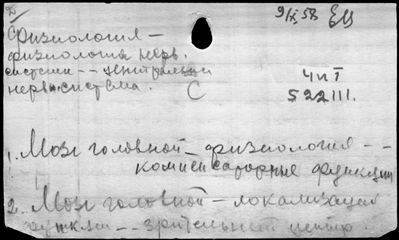 9/IX 58
Физиология —
физиология нерв.
системы -- центральн
нерв. система.
С
Ч и Т
522111.
1. Мозг головной — физиология --
компенсаторные функции
2. Мозг головной — локализация
функции -- зрительный центр.